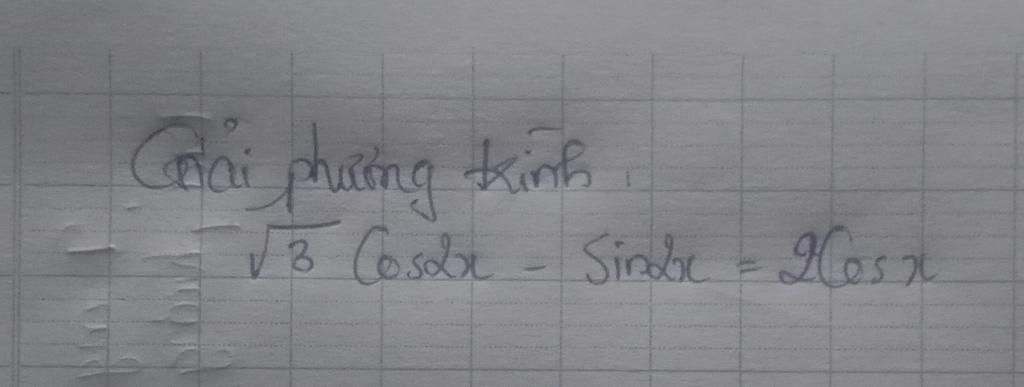 Giải phương trình.
√3 Cos2x - Sin2x = 2Cos x